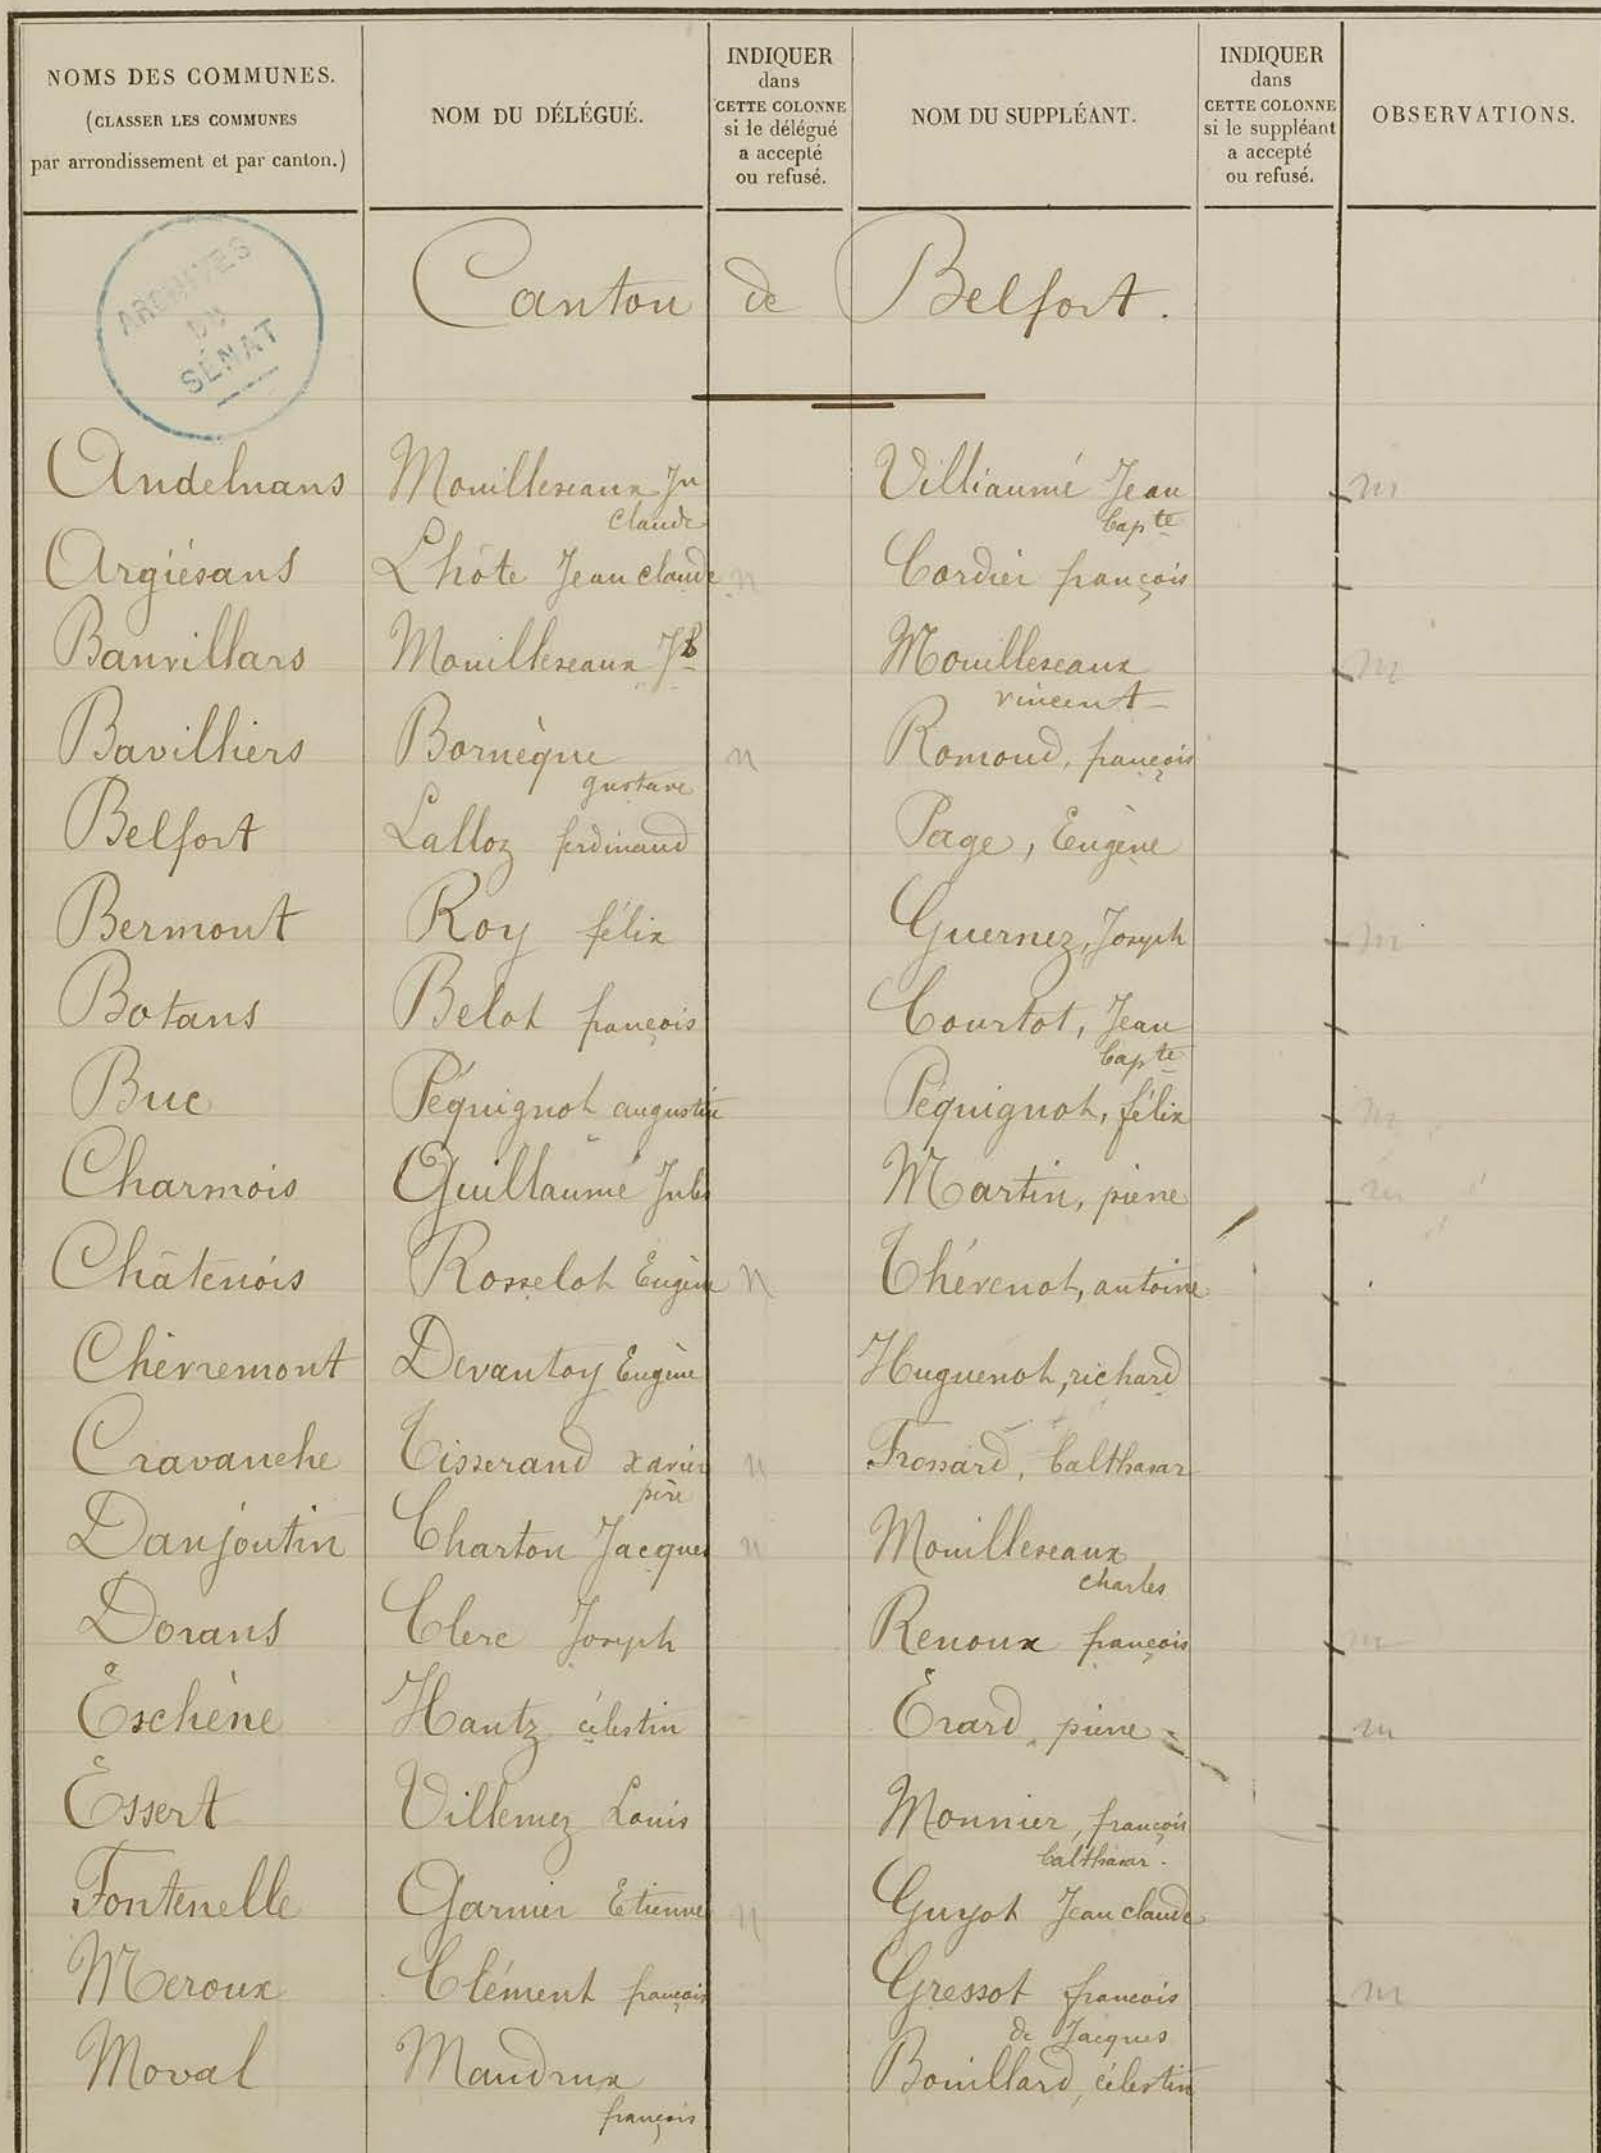 NOMS DES COMMUNES.
(CLASSER LES COMMUNES
par arrondissement et par canton.)
NOM DU DÉLÉGUÉ.
INDIQUER
dans
CETTE COLONNE
si le délégué
a accepté
ou refusé.
NOM DU SUPPLÉANT.
INDIQUER
dans
CETTE COLONNE
si le suppléant
a accepté
ou refusé.
OBSERVATIONS.
ARCHIVES
DU
SÉNAT
Canton de Belfort.
Andelnans Mouilleseaux Jn Villiaumé Jean m
claude Bapte
Argiésans Lhôte Jean claude n Cordier françois
Banvillars Mouilleseaux JB Mouilleseaux m
vincent
Bavilliers Bornèque n Romond, françois
gustave
Belfort Lalloz ferdinand Page, Eugène
Bermont Roy félix Guernez, Joseph m
Botans Belot françois Courtot, Jean
Bapte
Buc Péquignot augustin Péquignot, félix m
Charmois Guillaume Jules Martin, pierre m
Châtenois Rosselot Eugène n Thévenot, antoine
Chèvremont Devantoy Eugène Huguenot, richard
Cravanche Tisserand xavier n Frossard, Balthasar
père
Danjoutin Charton Jacques n Mouilleseaux
charles
Dorans Clerc Joseph Renoux françois m
Eschène Hantz célestin Erard, pierre m
Essert Villemez Louis Monnier, françois
Balthasar.
Fontenelle Garnier Etienne n Guyot Jean claude
Meroux Clément françois Gressot francois m
de Jacques
Moval Maudrux Bouillard, célestin
françois